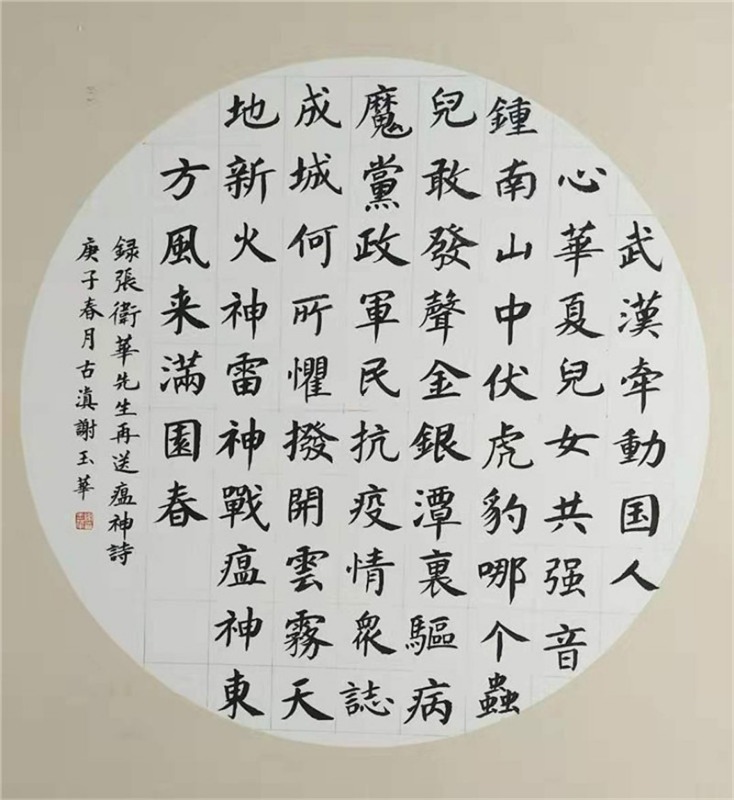 武漢牽動国人
心華夏兒女共强音
鍾南山中伏虎豹哪个蟲
兒敢發聲金銀潭裏驅病
魔黨政軍民抗疫情衆誌
成城何所懼撥開雲霧天
地新火神雷神戰瘟神東
方風来滿園春
録張衛華先生再送瘟神詩
庚子春月古滇謝玉華